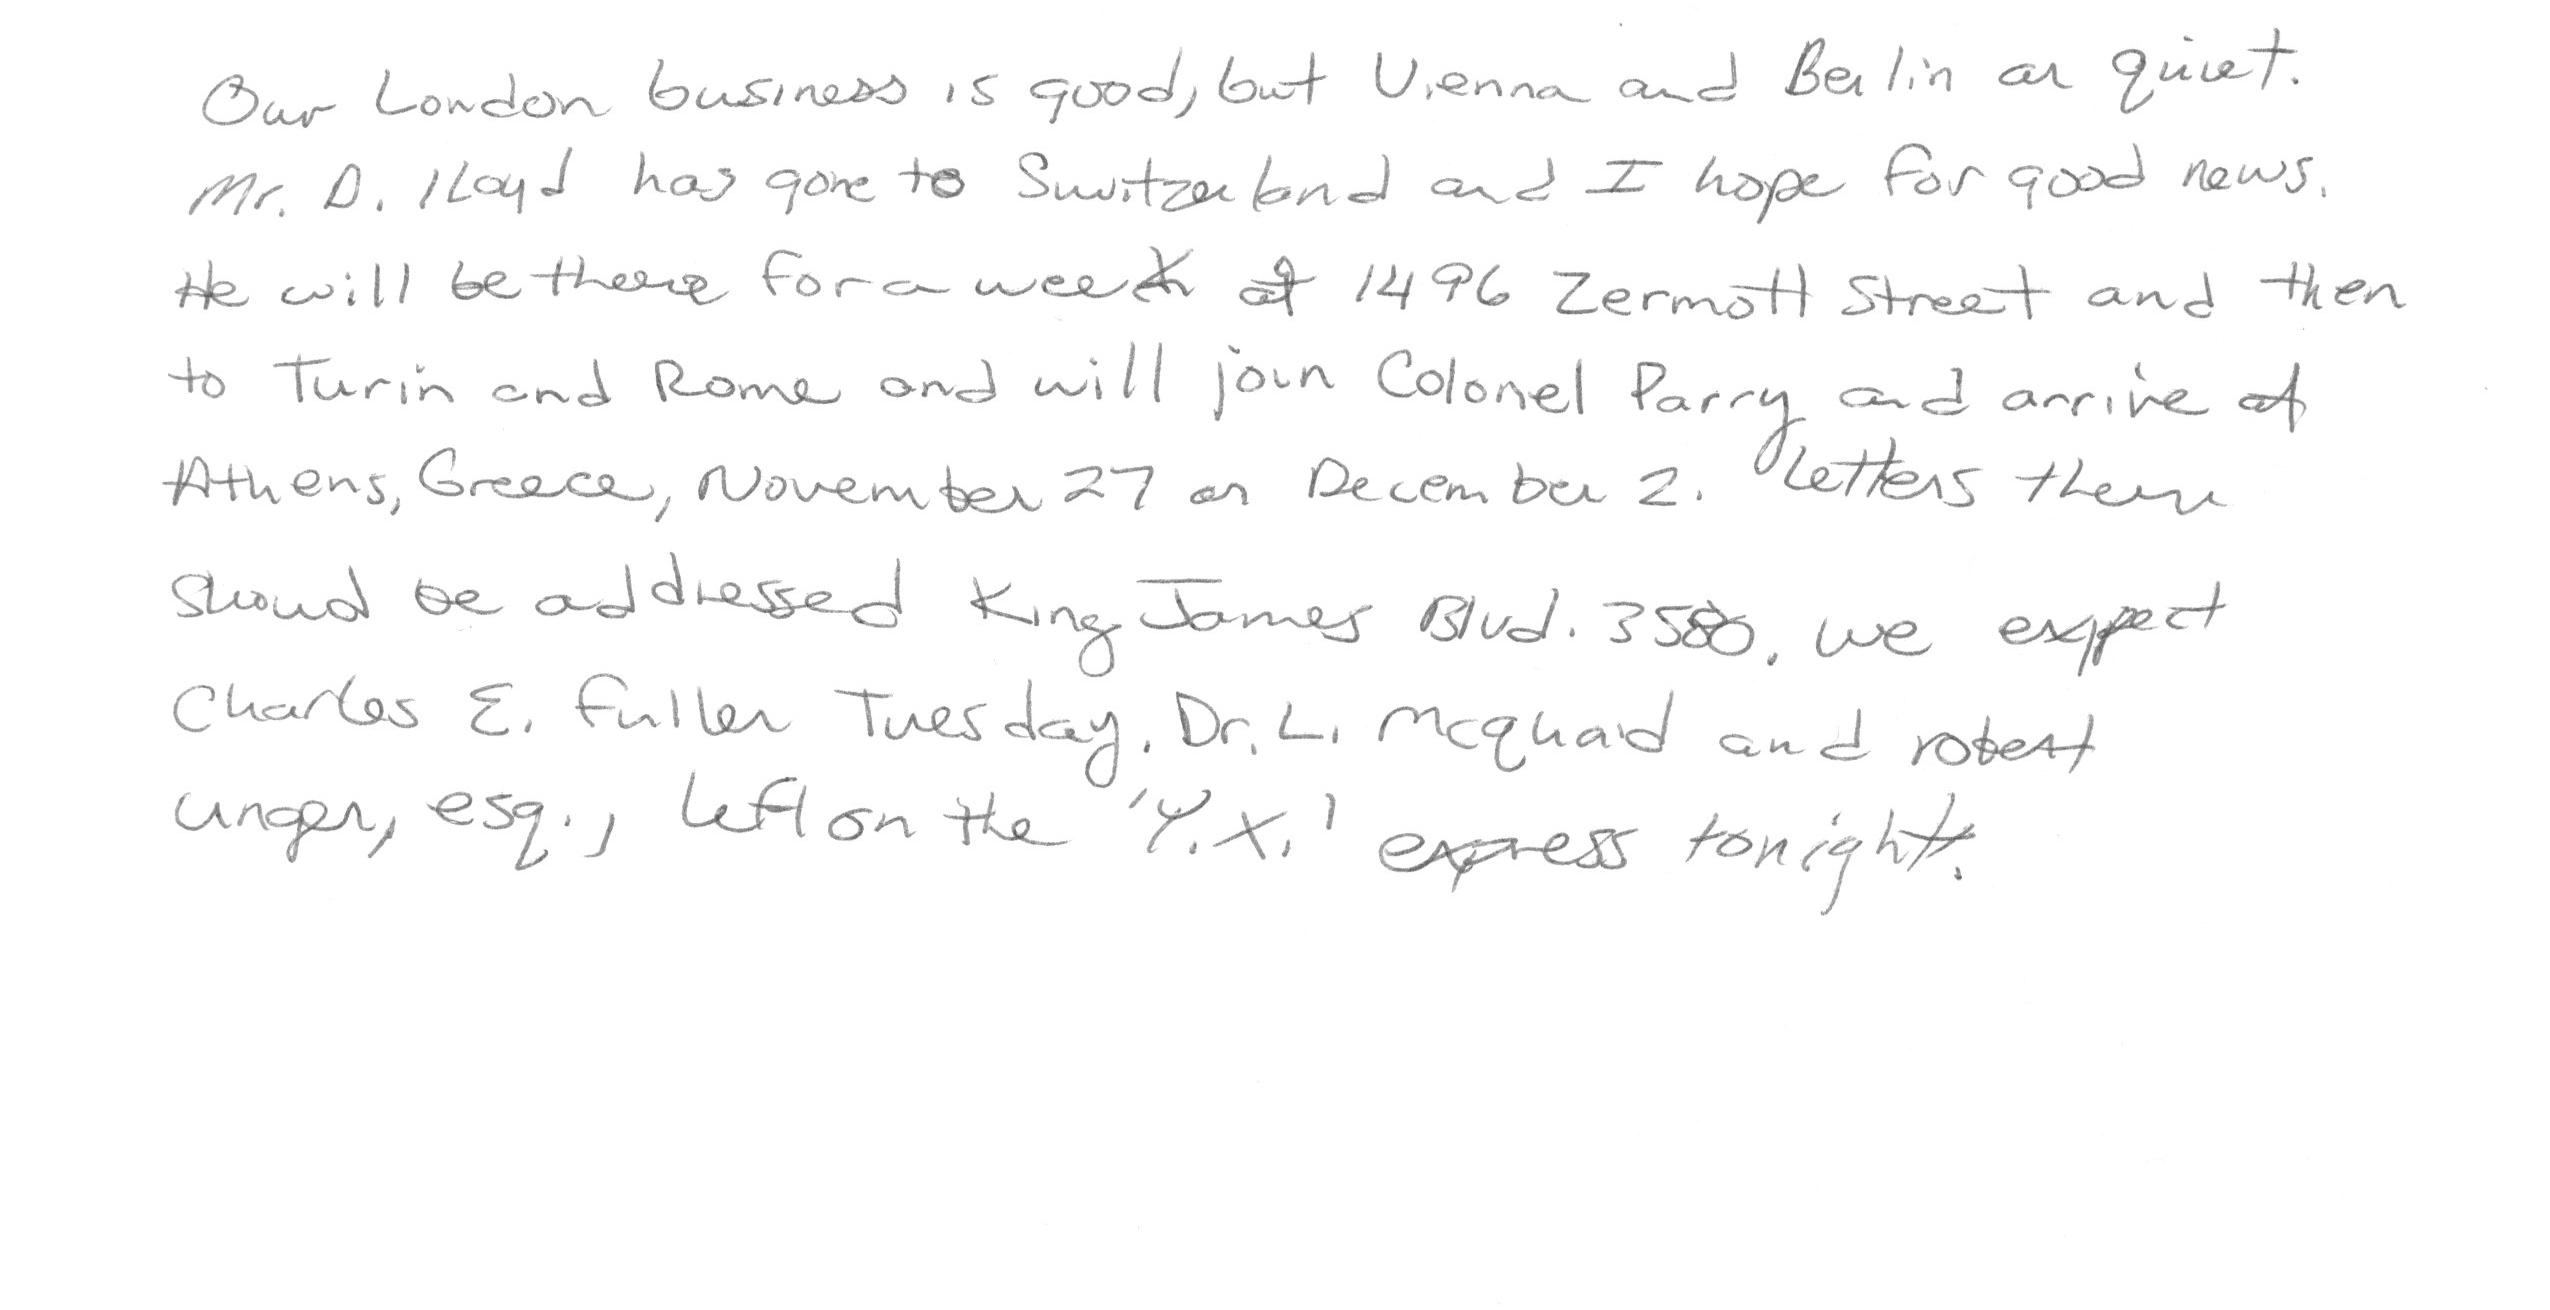 Our London business is good, but Vienna and Berlin are quiet.
Mr. D. Lloyd has gone to Switzerland and I hope for good news.
He will be there for a week at 1496 Zermott Street and then
to Turin and Rome and will join Colonel Parry and arrive at
Athens, Greece, November 27 or December 2. Letters there
shoud be addressed King James Blvd. 3580. we expect
Charles E. Fuller Tuesday. Dr. L. Mcquaid and robert
unger, esq., left on the 'Y.X.' express tonight.